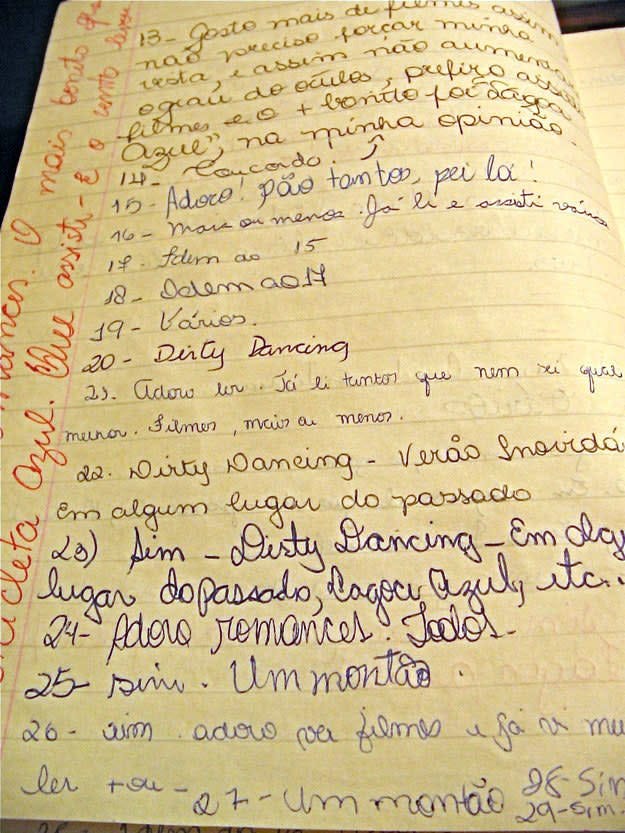 13- Gosto mais de filmes assim
não preciso forçar minha
vista, e assim não aumenta
o grau do óculos, prefiro
filmes e o + bonito foi "Lagoa
Azul", na minha opinião.
14- Concordo.
15- Adoro! Pão tantos, sei lá!
16- mais ou menos. Já li e assisti vários
17- Idem ao 15
18- Idem ao 17
19- Vários.
20- Dirty Dancing
21. Adoro ler. Já li tantos que nem sei qual
melhor. Filmes, mais ou menos.
22. Dirty Dancing - Verão Inovidá
Em algum lugar do passado
23) Sim - Dirty Dancing - Em alg
lugar do passado, Lagoa Azul, etc..
24- Adoro romances. Todos.
25- sim. Um montão.
26- sim adoro ver filmes e já vi mu
ler +ou-
27- Um montão 28- Sim
29- Sim.
romances. O mais bonito q
cleta Azul. Que assisti- E o conto